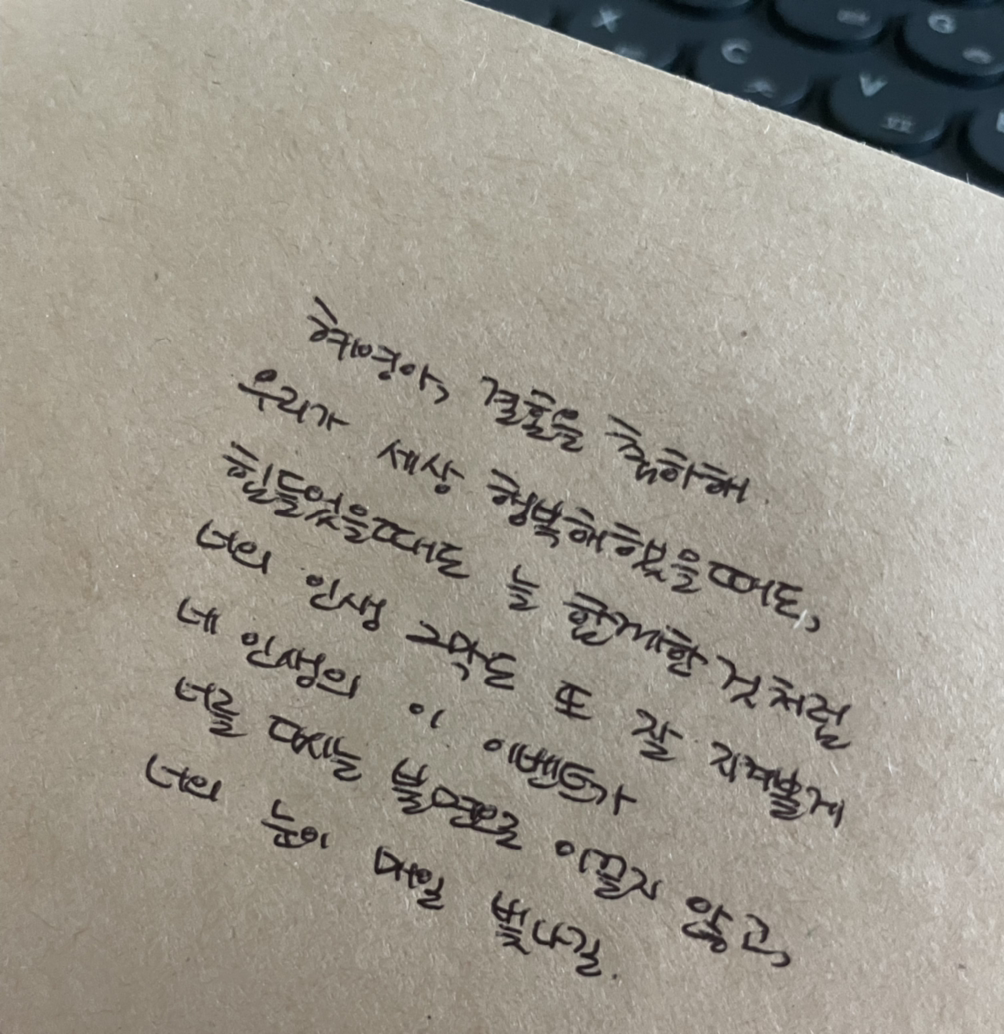 혜영아, 결혼을 축하해.
우리가 세상 행복해했을때도,
힘들었을때도 늘 함께한 것처럼
너의 인생 2막도 또 잘 지켜볼게
네 인생의 이 이벤트가
너를 다시는 불면으로 이끌지 않고,
너의 눈이 매일 빛나길.
X
C
V
ㅍ
G